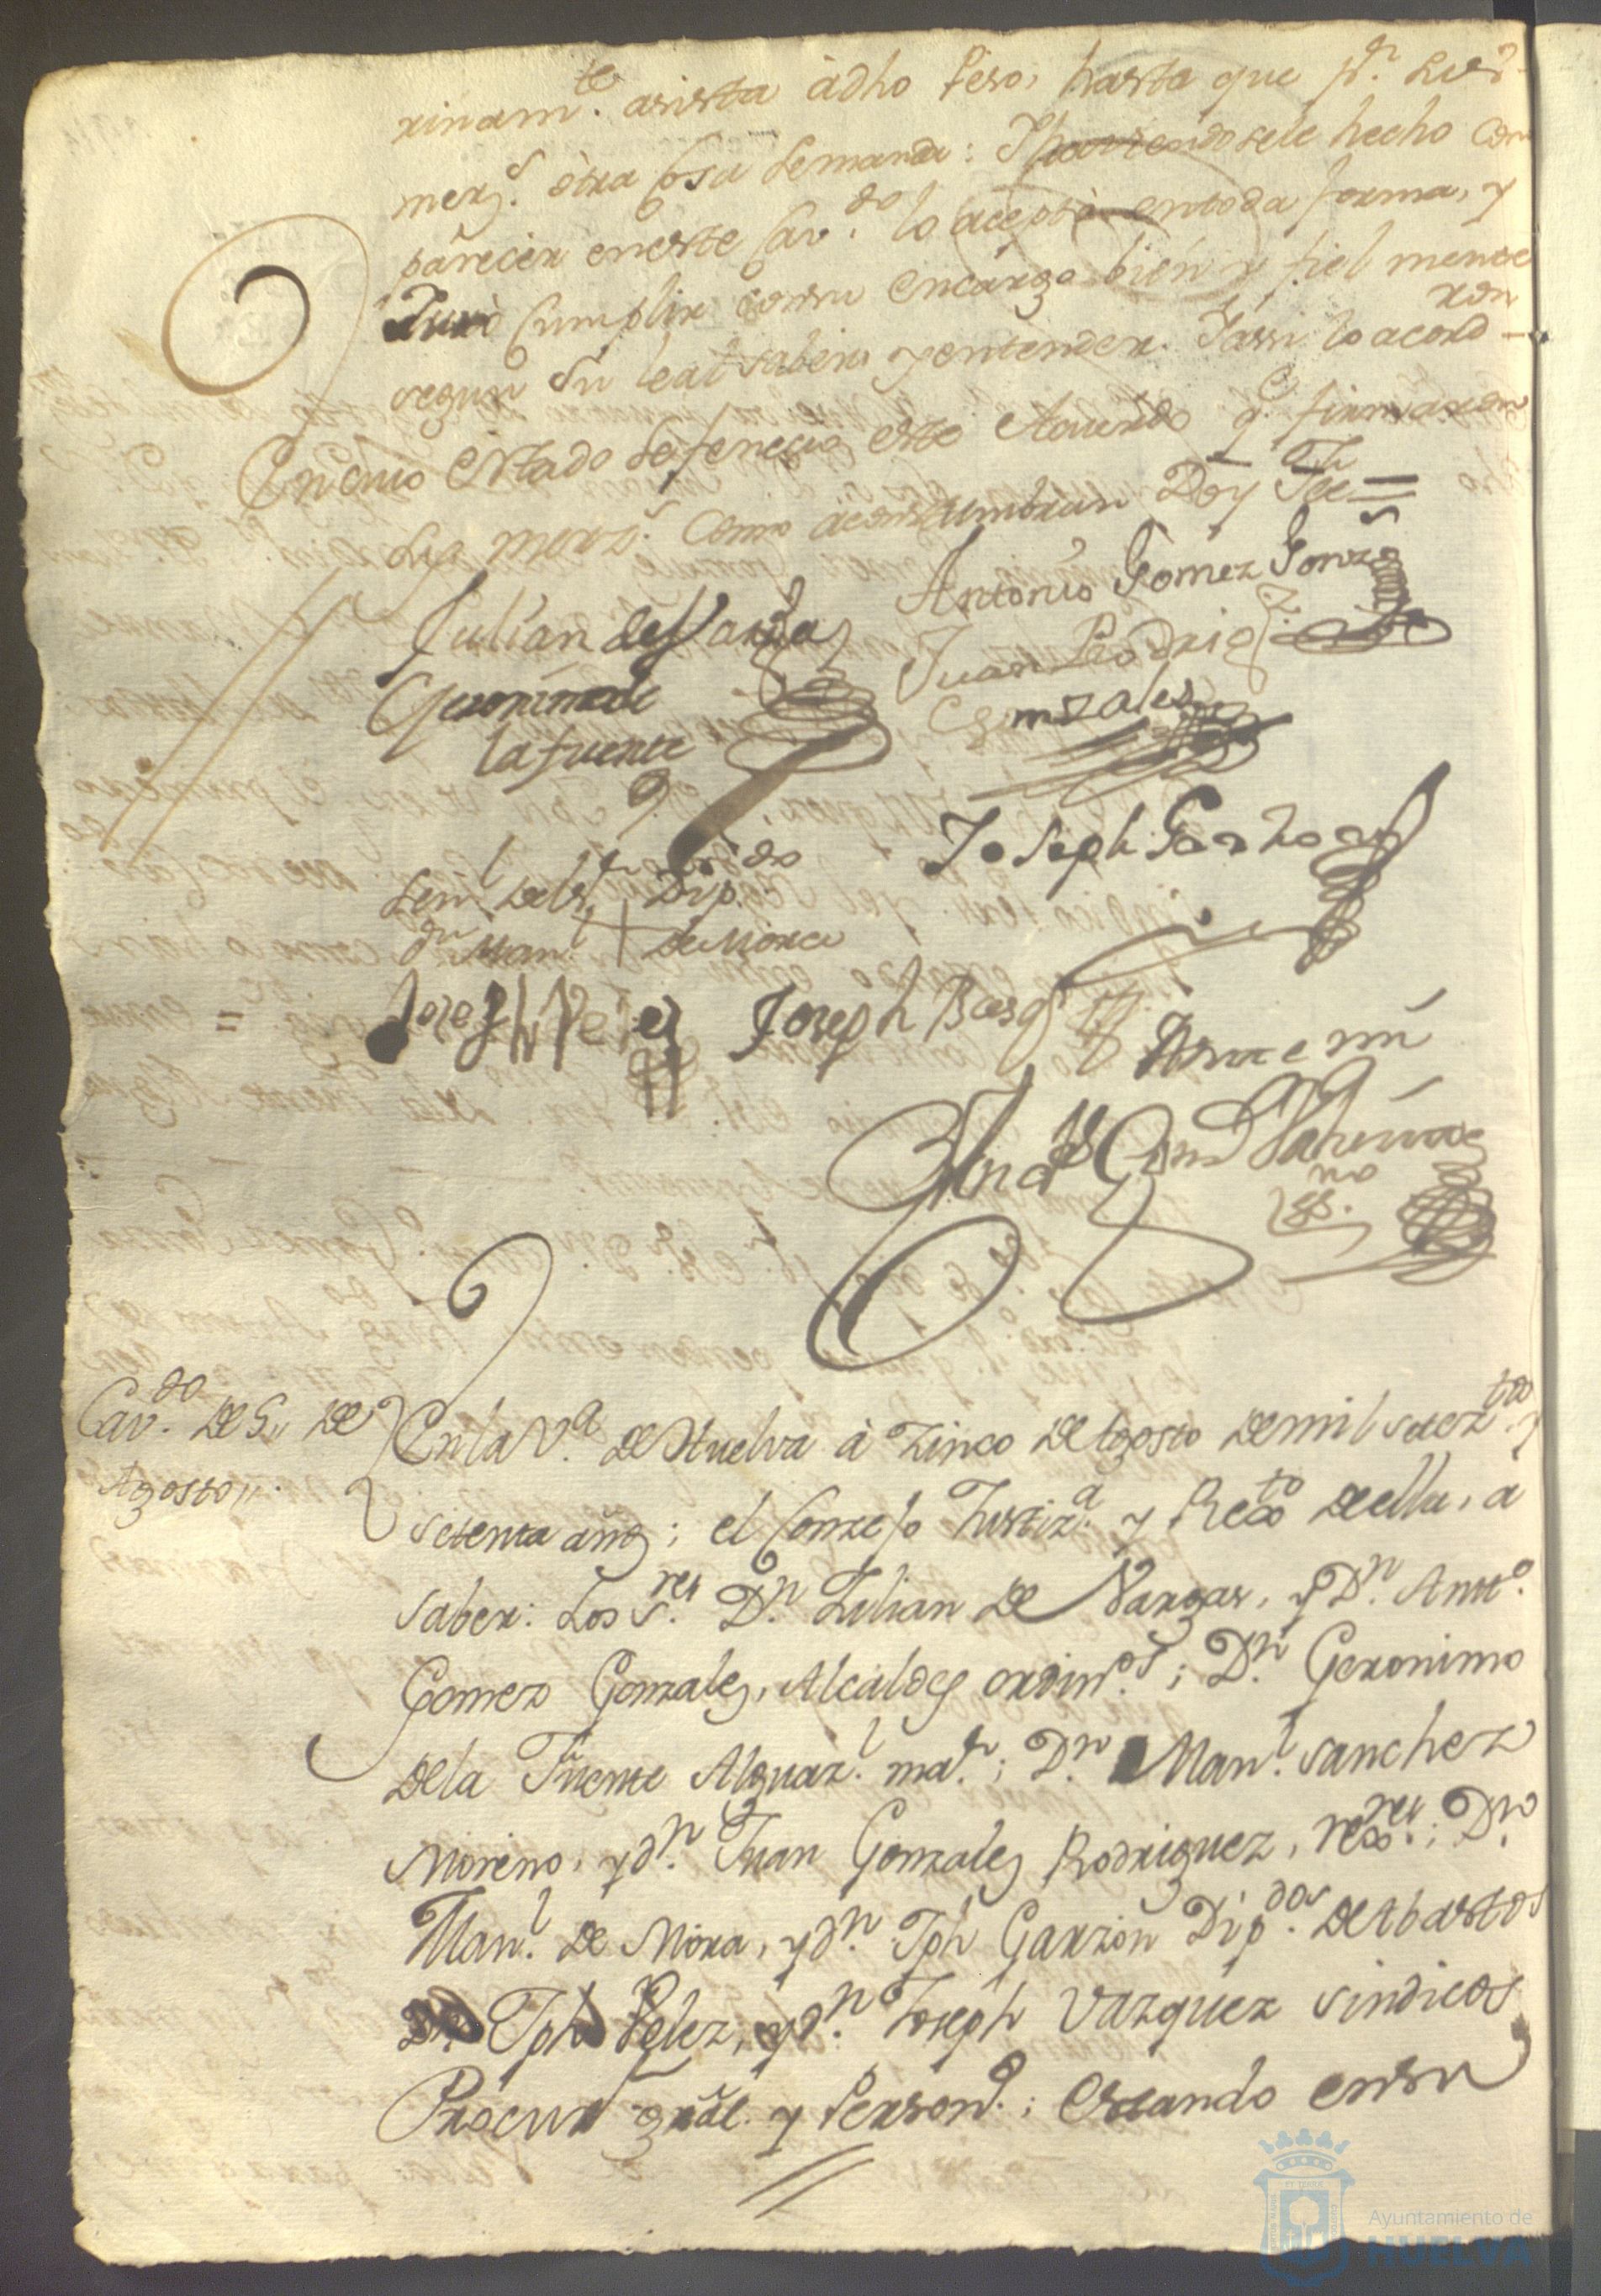 rinam.te asista à dho Peso, hasta que p.r sus
merz.s otra cosa se manda: Y haviendosele hecho com
parecer en este Cav.do lo aceptò en toda forma, y
Jurò cumplir con su encargo bien y fiel mente
segun su leal saber y entender. Y assi lo acord-
ron
En cuio estado se fenecio este Acuerdo q.e firmaron
sus merz.s como acostumbran Doy Fee =
Antonio Gomez Gonz.s
Julian de Vargas
Juan Rodrig.z
Geronimo de
Gonzales
la fuente
Joseph Garzon
Señl. del S.r Dip.do
Dn Man.l + de Mora
= Joseph Pelez Joseph Basqz
Ante mí
no
ss.
Cav.do de 5. de
Agosto
En la V.a de Huelva à zinco de Agosto de mil setez.tos y
setenta años; el Conzejo Justiz.a y Rexto de ella, a
saber: Los S.res D.n Julian de Vargas, y D.n Antt.o
Gomez Gonzales, Alcaldes ordin.os; D.n Geronimo
de la Fuente Alguaz.l ma.r; D.n Man.l Sanchez
Moreno, y d.n Juan Gonzales Rodriguez, rexres.; D.n
Man.l de Mora, y d.n Jph Garzòn Dip.dos de Abastos
Dn Jph Pelez, y d.n Joseph Vazquez sindicos
Procur gràl. y Person.o; Estando en su
Ayuntamiento de
HUELVA